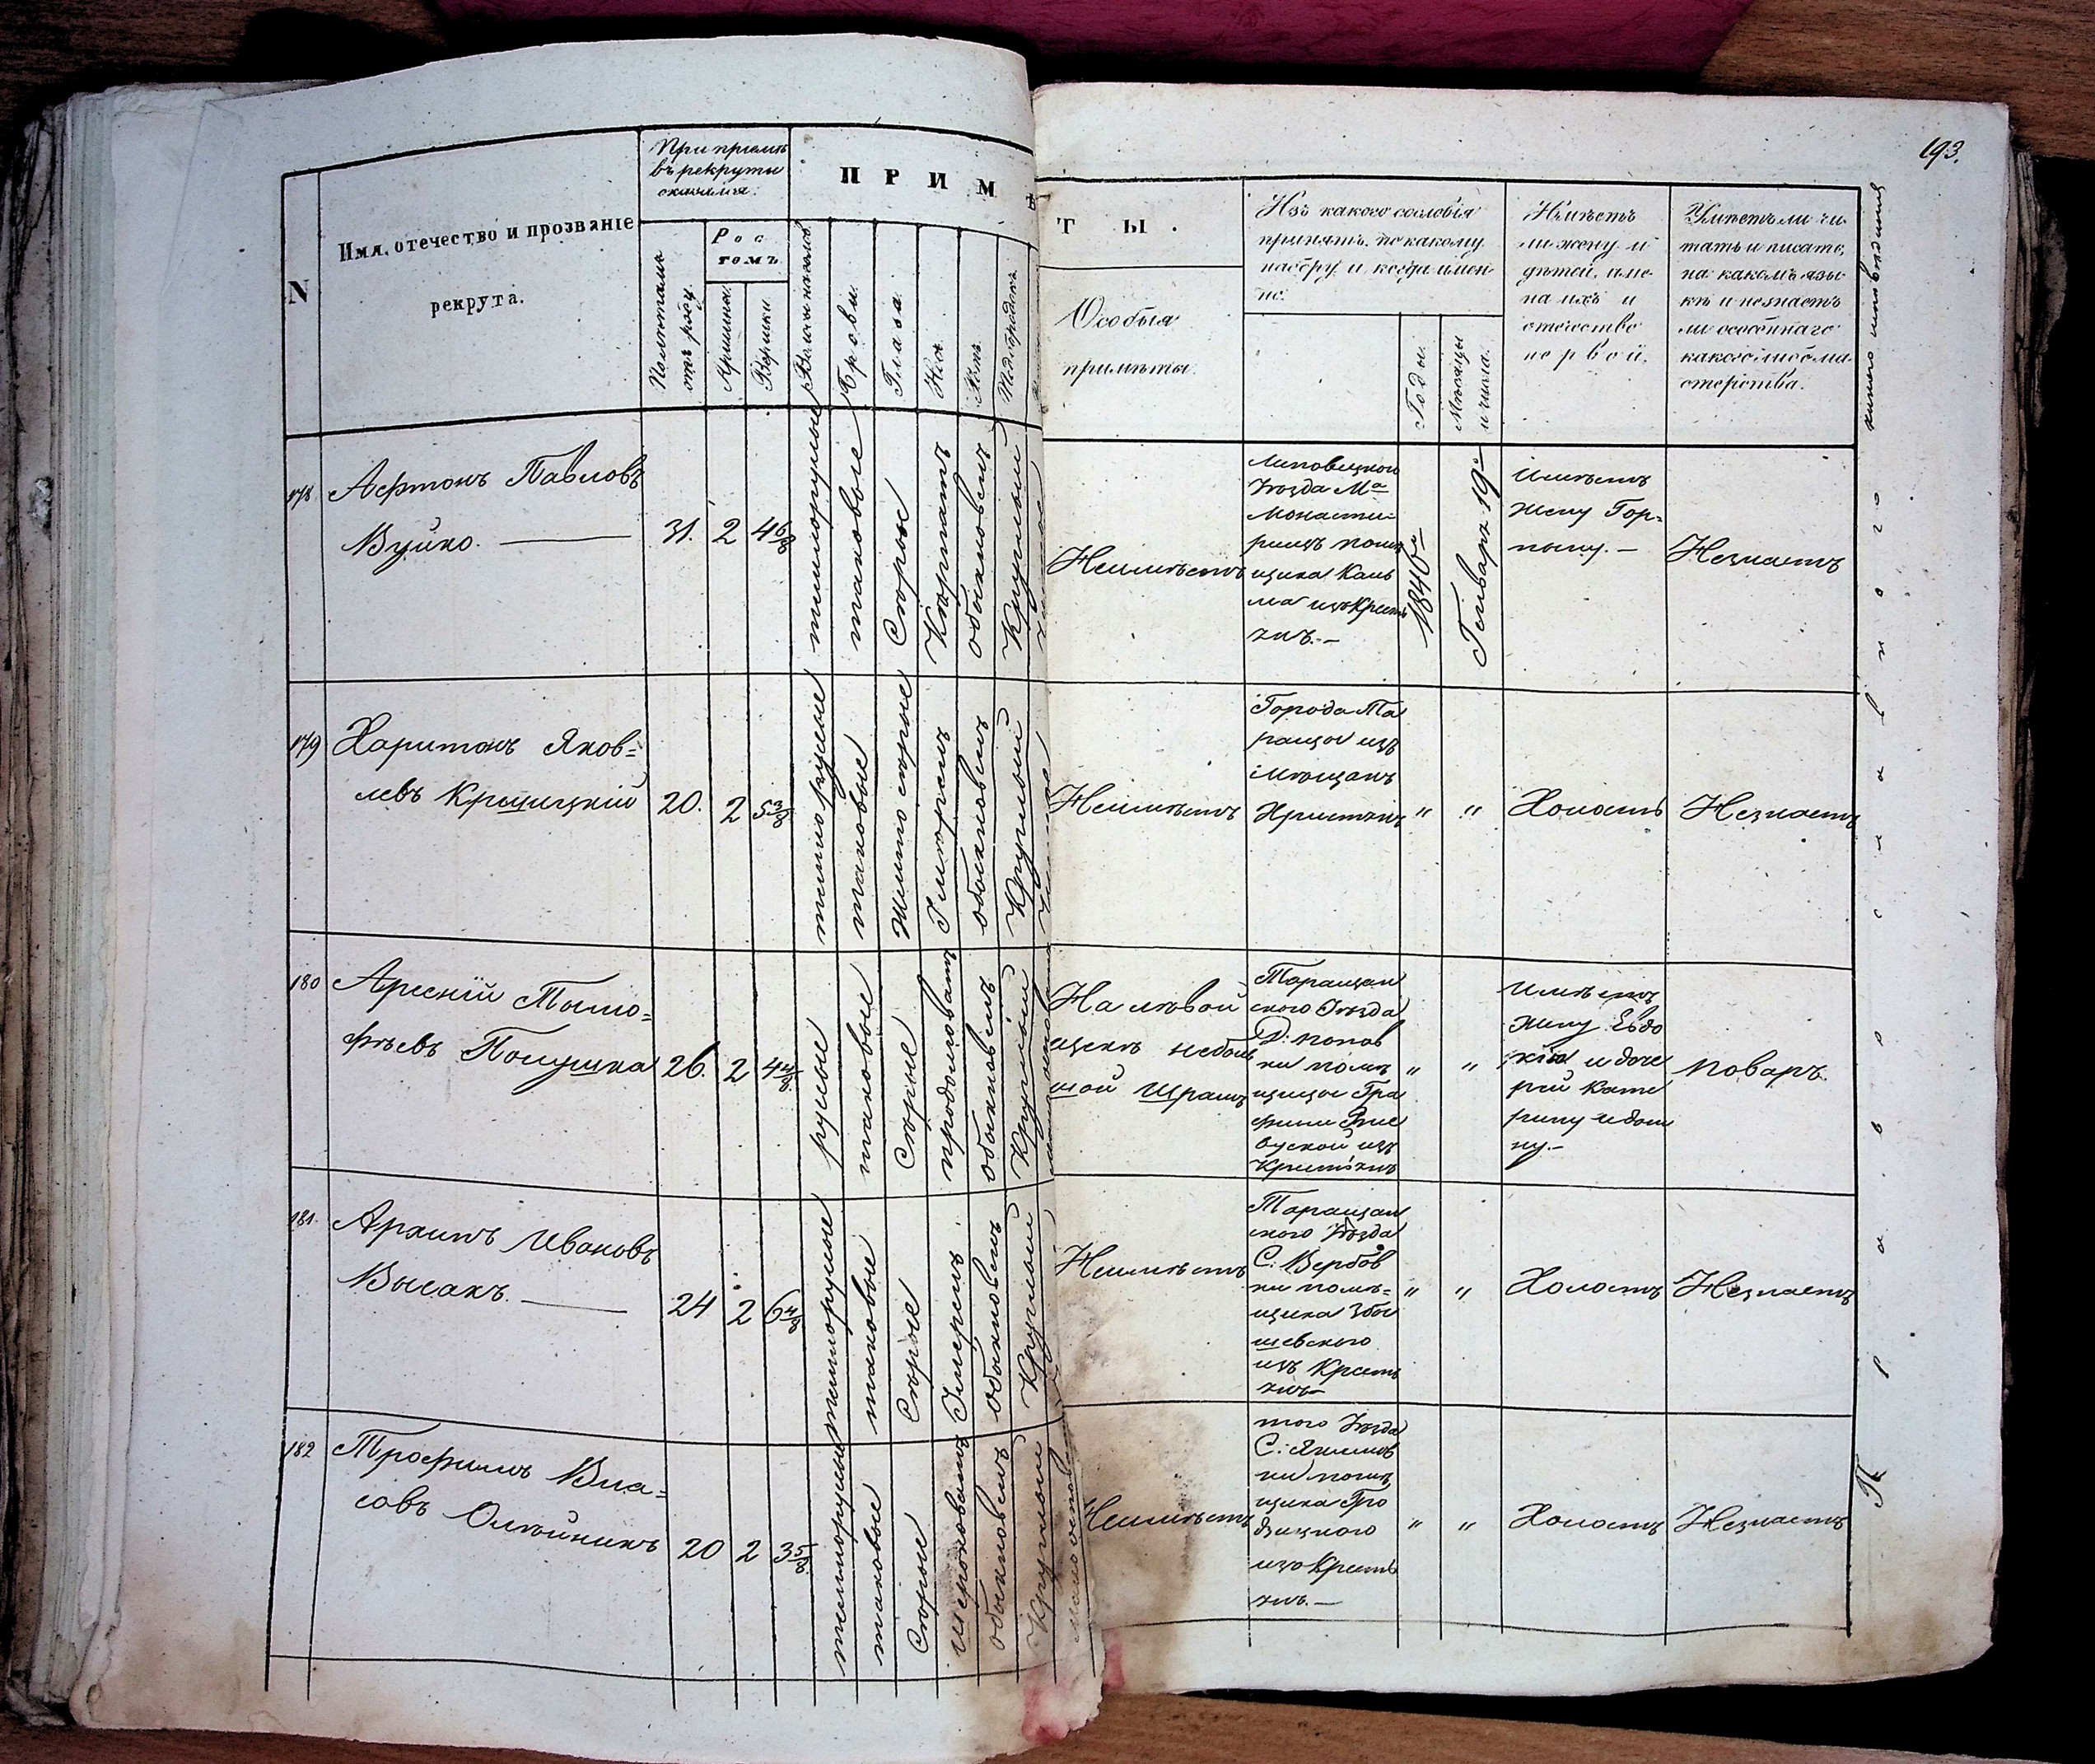 193.
N
Имя, отечество и прозваніе
рекрута.
При приемѣ
въ рекруты
оказался:
Полѣтамъ
отъ роду.
Рос
томъ.
Аршины.
Вершки.
ПРИМѢТЫ.
Брови.
Глаза.
Носъ.
Ротъ.
Подбородокъ.
Особыя
примѣты.
Изъ какого сословія
принятъ, по какому
набору и когда имен
но.
Годы.
Мѣсяцы
и числа.
Имѣетъ
ли жену и
дѣтей, име
на ихъ и
отечество
первой.
Умѣетъ ли чи
тать и писать,
на какомъ язы
кѣ и незнаетъ
ли особеннаго
какого либо ма
стерства.
178
Павловъ
Вуйко.
31.
2
4 6/8
темнорусые
таковые
Серые
обыкновенъ
Круглый
Неимѣетъ
Липовецкого
Уѣзда Ма
Монасти
рищъ помѣ
щика
изъ Кресть
янъ.—
1846го
Генваря 19го
Имѣетъ
жену Гор=
пыну.—
Незнаетъ
179
Харитонъ Яков=
левъ
20.
2
5 3/8
темнорусые
таковые
Желто серые
Умѣренъ
обыкновенъ
Круглый
Неимѣетъ
Города Та
ращи изъ
Мѣщанъ
Христіянъ
"
"
Холостъ
Незнаетъ
180
Арсеній Тымо=
фѣевъ Полушка
26.
2
4 4/8
русые
таковые
Серые
продолговатъ
обыкновенъ
Круглый
На лѣвой
щекѣ неболь
шой шрамъ
Таращан
ского Уѣзда
Д: попов
ки помѣ
щицы Гра
фини Рже
вуской изъ
Крестьянъ
"
"
Имѣетъ
жену Евдо
кію и доче
рей Кате
рину и дом
ну.—
поваръ.
181.
Архипъ Ивановъ
Высакъ.
24
2
6 4/8
темнорусые
таковые
Серые
Умеренъ
обыкновенъ
Круглый
Неимѣетъ
Таращан
ского Уѣзда
С: Вербов
ки помѣ=
щика Збы
шевского
изъ Кресть
янъ—
"
"
Холостъ
Незнаетъ
182
Трофимъ Вла=
совъ Олѣйникъ
20
2
3 5/8
темнорусые
таковые
Серые
широковатъ
обыкновенъ
Круглый
Неимѣетъ
того Уѣзда
С: Якимов
ки помѣ
щика Гро
дзицкого
изъ Кресть
янъ.—
"
"
Холостъ
Незнаетъ
Православного